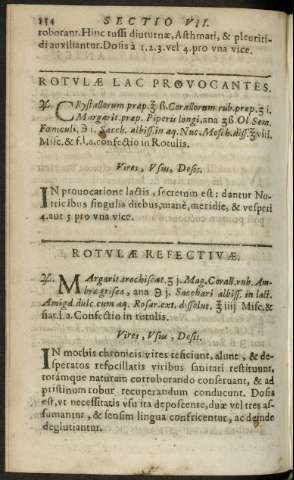 254 SECTIO VII.
roborant. Hinc tussi diuturnæ, Asthmati, & pleuriti-
di auxiliantur. Dosis à 1.2.3. vel 4. pro vna vice.
ROTVLÆ LAC PROVOCANTES.
℞. CRystallorum præp. ʒ ß. Corallorum rub. præp. ʒ i.
Margarit. præp. Piperis longi, ana ʒß. Ol. Sem.
Fœniculi, ℈ i. Sacch. albiss. in aq. Nuc. Mosch. diss. ℥viii.
Misc. & f.l.a. confectio in Rotulis.
Vires, Vsus, Dosis.
IN prouocatione lactis, secretum est: dantur Nu-
tricibus singulis diebus, manè, meridie, & vesperi
4. aut 5 pro vna vice.
ROTVLÆ REFECTIVÆ.
℞. MArgarit. trochiscat. ʒ j. Mag. Corall. rub. Am-
bræ griseæ, ana ℈ j. Sacchari albiss. in lact.
Amigd. dulc. cum aq. Rosar. ext. dissolut. ℥ iiij Misc. &
fiat.l.a. Confectio in rotulis.
Vires, Vsus, Dosis.
IN morbis chronicis vires reficiunt, alunt, & de-
speratos refocillatis viribus sanitati restituunt,
totámque naturam corroborando conseruant, & ad
pristinum robur recuperandum conducunt. Dosis
est, vt necessitatis vsu ita deposcente, duæ vel tres as-
sumantur, & sensim lingua confricentur, ac deinde
deglutiantur.